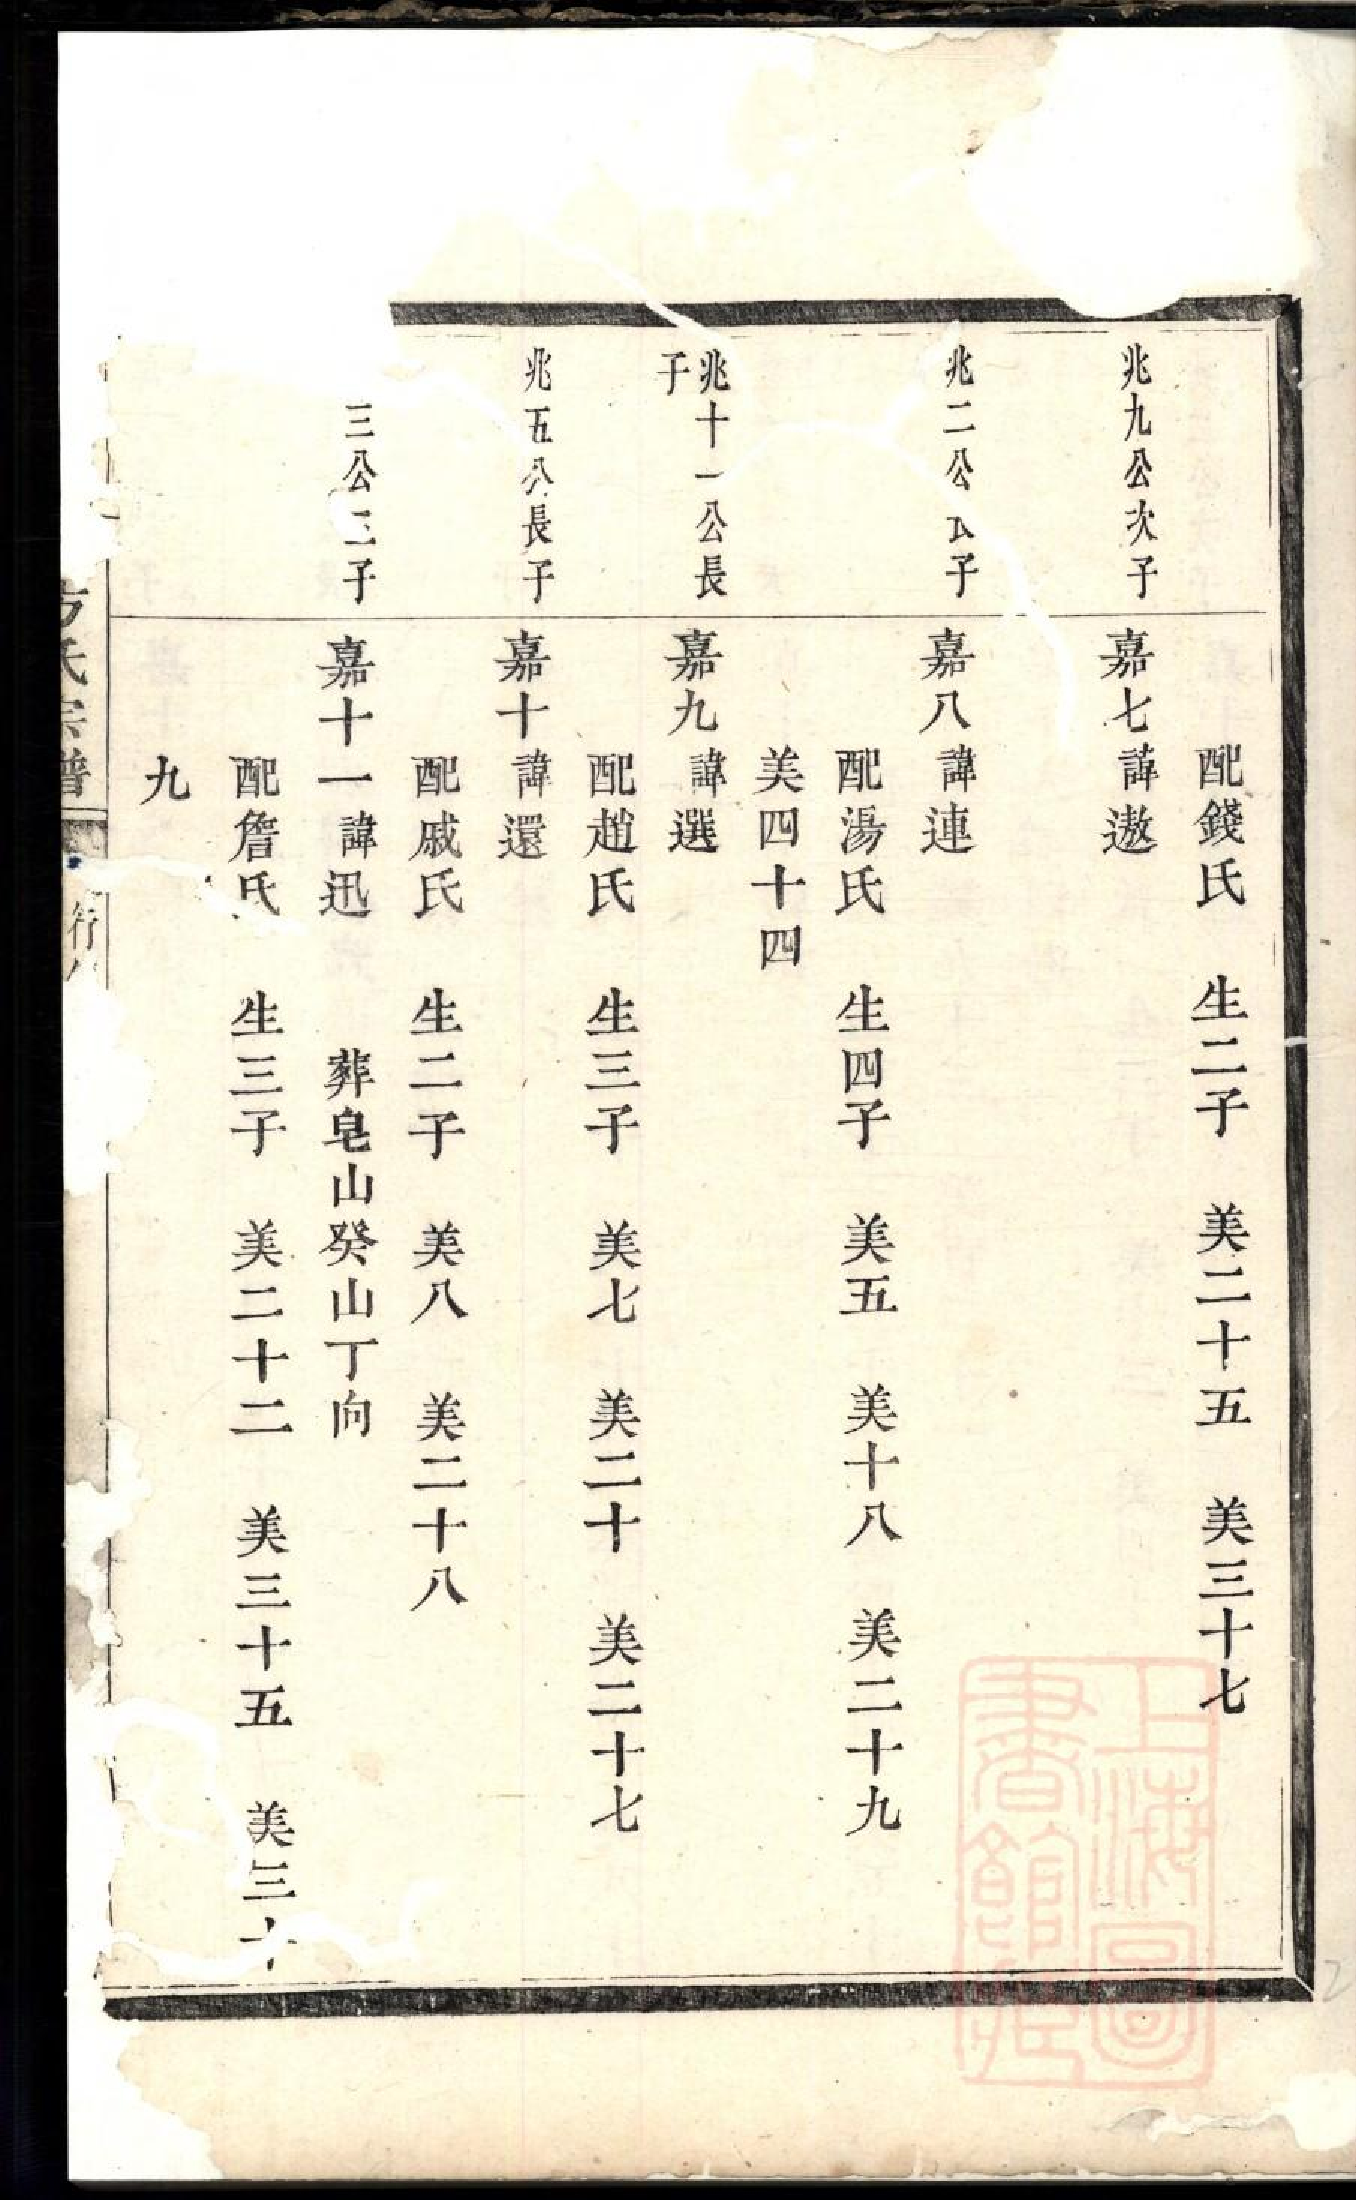 配錢氏　生二子　美二十五　美三十七
兆九公次子
嘉七諱遨
兆二公　子
嘉八諱連
配湯氏　生四子　美五　美十八　美二十九
美四十四
兆十一公長
子
嘉九諱選
配趙氏　生三子　美七　美二十　美二十七
兆五公長子
嘉十諱還
配戚氏　生二子　美八　美二十八
三公三子
嘉十一諱迅　葬皂山癸山丁向
配詹氏　生三子　美二十二　美三十五　美三十
九
方氏宗譜
行
上海圖
書館藏